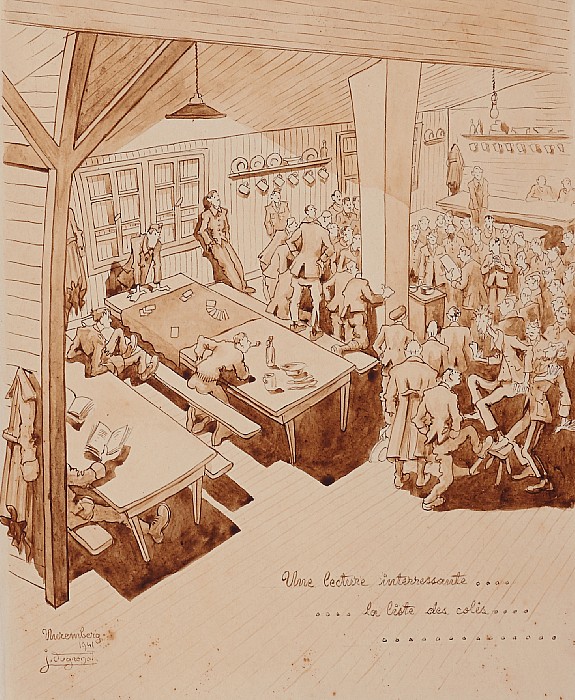 Une lecture interressante ....
.... la liste des colis ....
..............
Nuremberg
1941